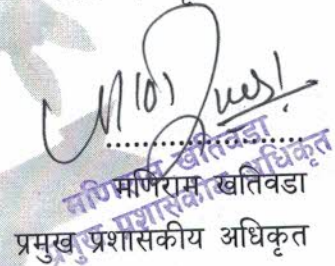 मणिराम खतिवडा
प्रमुख प्रशासकीय अधिकृत
मणिराम खतिवडा
प्रमुख प्रशासकीय अधिकृत